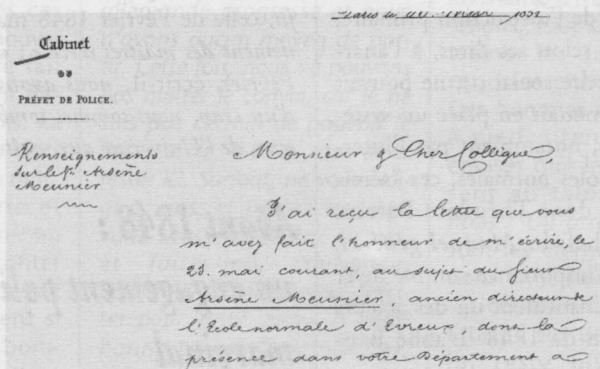 Cabinet
DU
PRÉFET DE POLICE.
Renseignements
sur le Sr Arsène
Meunier
Monsieur & Cher Collègue,
J'ai reçu la lettre que vous
m'avez fait l'honneur de m'écrire, le
23 mai courant, au sujet du sieur
Arsène Meunier, ancien directeur de
l'Ecole normale d'Evreux, dont la
présence dans votre Département a